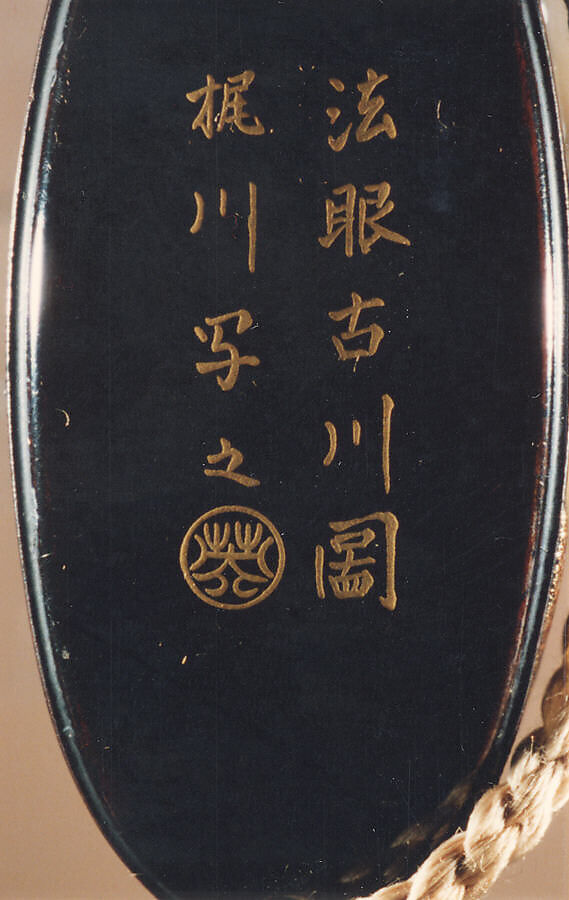 法眼古川圖
梶川写之